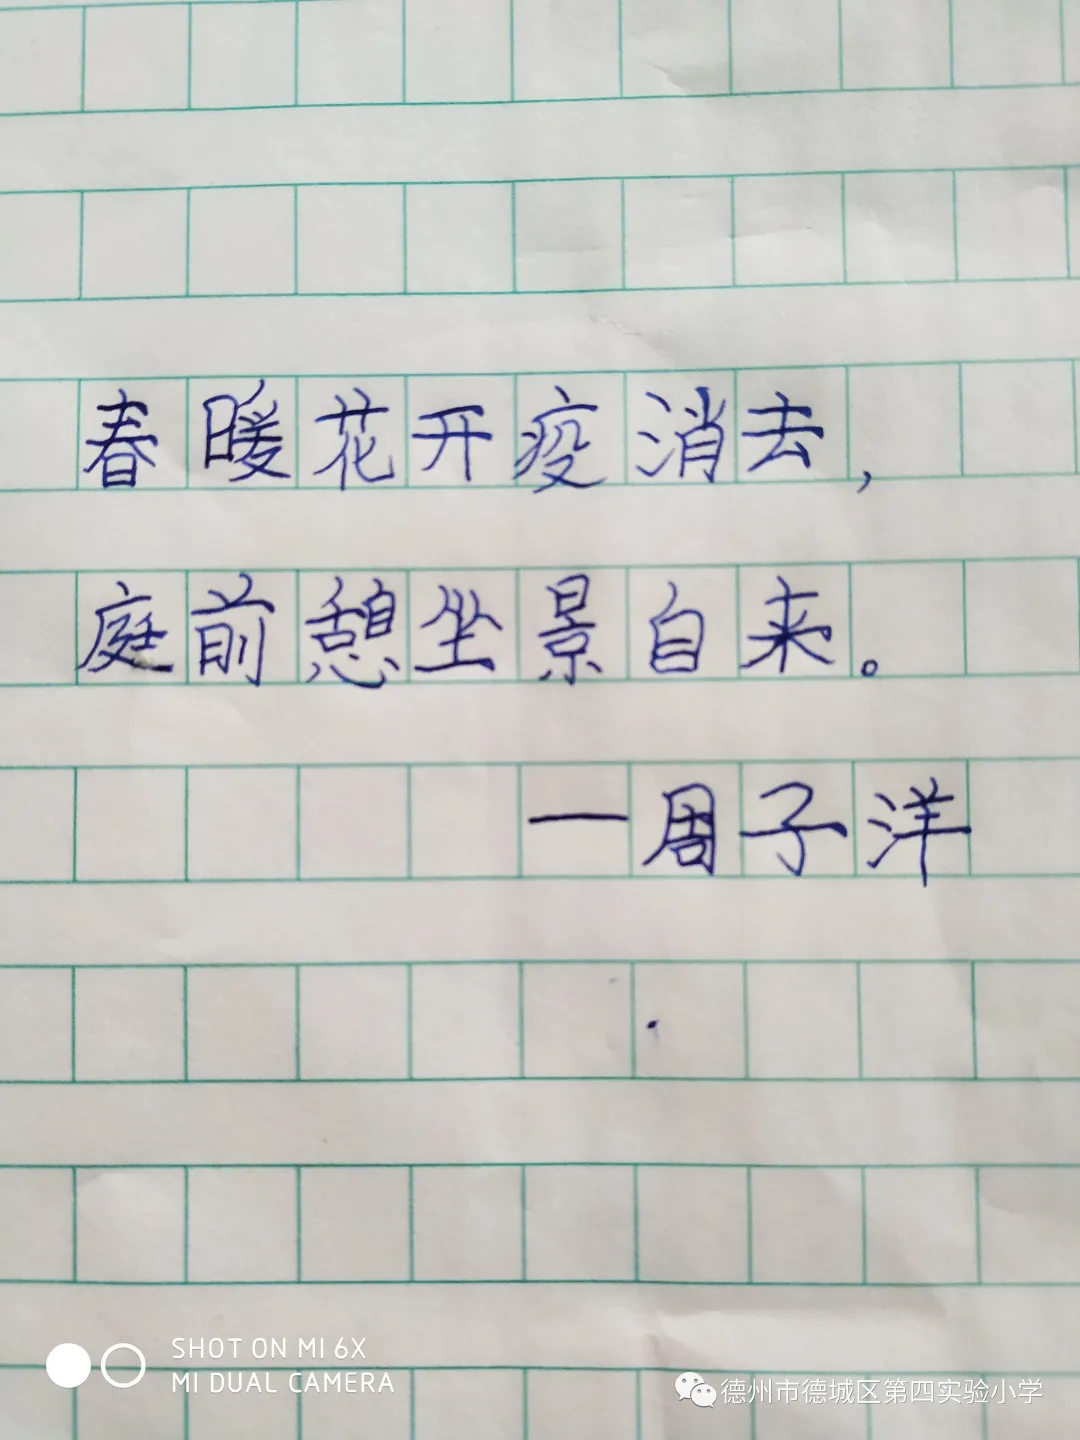 春暖花开疫消去，
庭前憩坐景自来。
一周子洋
SHOT ON MI 6X
MI DUAL CAMERA
德州市德城区第四实验小学